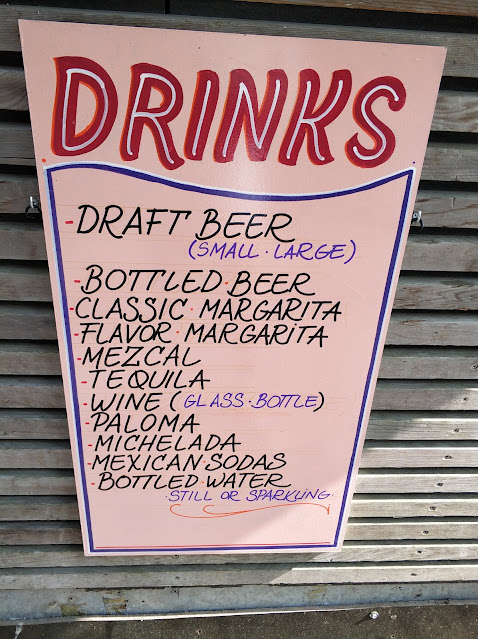 DRINKS
-DRAFT BEER
(SMALL · LARGE)
-BOTTLED·BEER
-CLASSIC·MARGARITA
-FLAVOR·MARGARITA
-MEZCAL
-TEQUILA
-WINE (GLASS·BOTTLE)
-PALOMA
-MICHELADA
-MEXICAN·SODAS
-BOTTLED·WATER
·STILL OR SPARKLING·